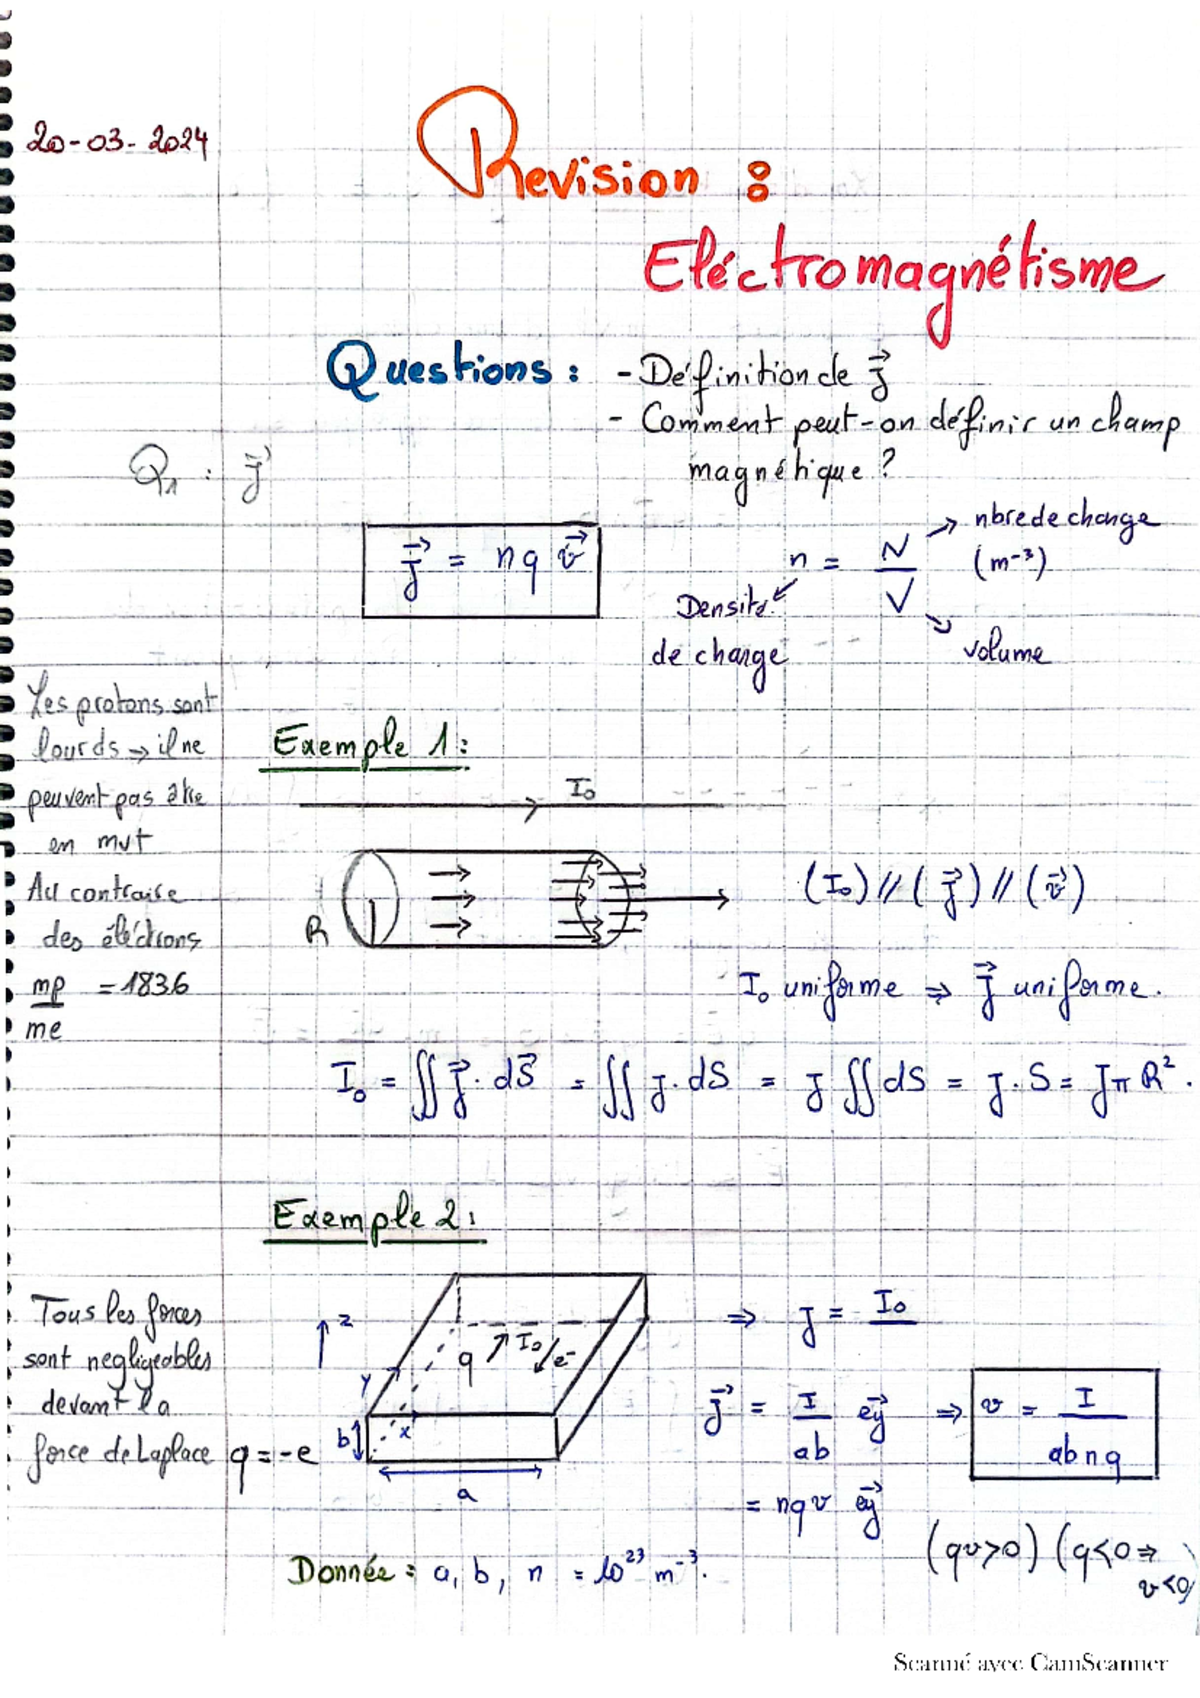 20-03-2024
Revision :
Eléctromagnétisme
Questions : - Définition de j⃗
- Comment peut-on définir un champ
magnétique ?
Q₁ : j⃗
j⃗ = n q v⃗
n = N/V
nbre de charge
(m⁻³)
Densité
de charge
volume
Les protons sont
lourds → il ne
peuvent pas être
en mvt
Au contraire
des éléctrons
mp/me = 1836
Exemple 1 :
I₀
R
(I₀) // (j⃗) // (v⃗)
I₀ uniforme ⇒ j⃗ uniforme.
I₀ = ∬ j⃗ . dS⃗ = ∬ j . dS = j ∬ dS = j . S = jπR².
Exemple 2 :
Tous les forces
sont negligeables
devant la
force de Laplace
q = -e
z
y
x
b
a
q
I₀
e⁻
⇒ j = I₀
j⃗ = I/ab ey⃗ ⇒ v = I/abnq
= nqv ey⃗
(qv>0) (q<0 ⇒
v<0)
Donnée : a, b, n = 10²³ m⁻³.
Scanné avec CamScanner